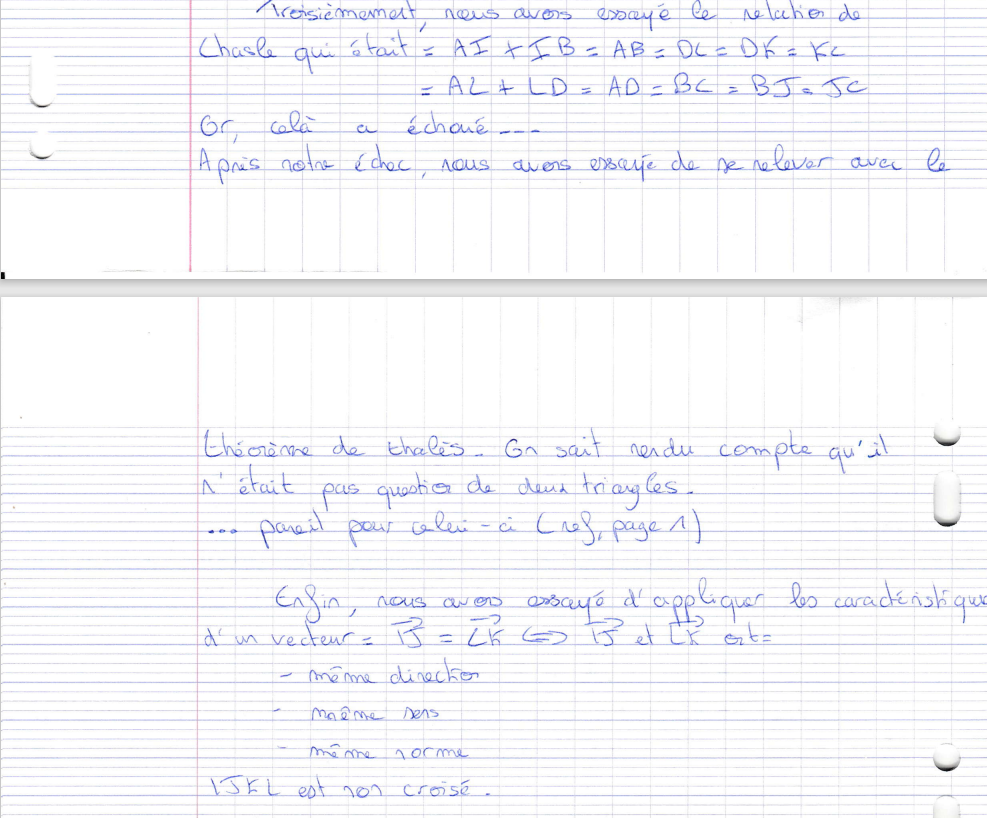 Troisièmement, nous avons essayé le relation de
Chasle qui était = AI + IB = AB = DC = DK = KC
= AL + LD = AD = BC = BJ = JC
Or, celà a échoué ---
Après notre échec, nous avons essayé de se relever avec le
théorème de thalès. On sait rendu compte qu'il
n'était pas question de deux triangles.
... pareil pour celui-ci (ref, page 1)
Enfin, nous avons essayé d'appliquer les caractéristique
d'un vecteur = \overrightarrow{IJ} = \overrightarrow{LK} <=> \overrightarrow{IJ} et \overrightarrow{LK} ont=
- même direction
- même sens
- même norme
IJKL est non croisé.